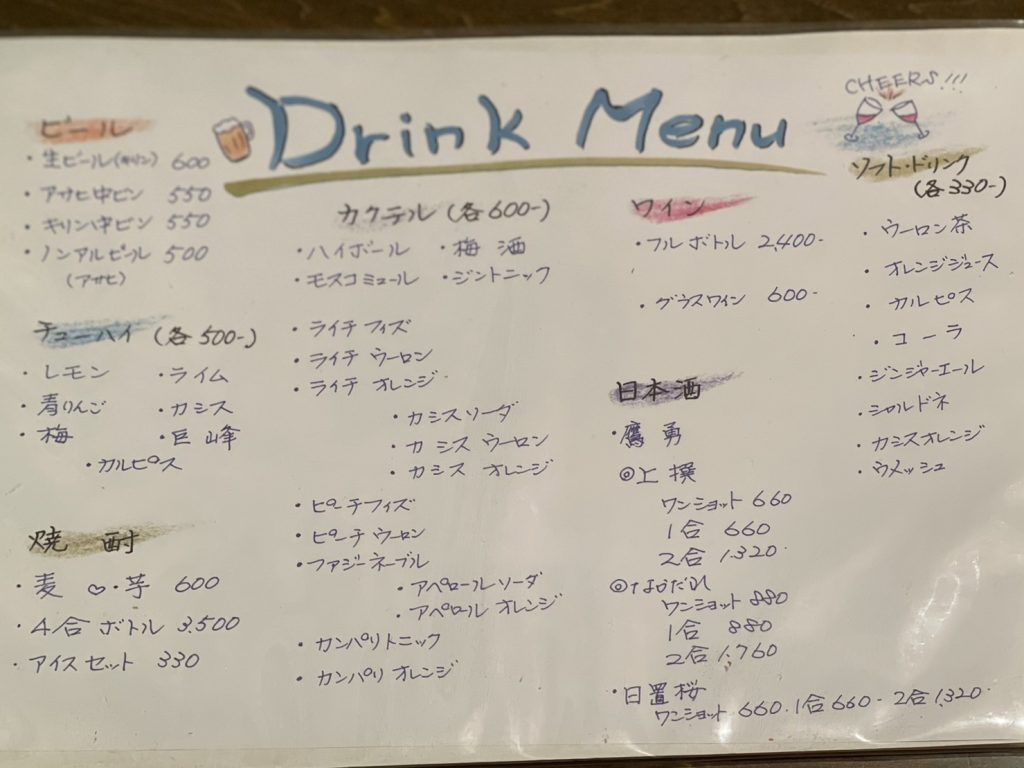 Drink Menu
CHEERS!!!
ビール
・生ビール(キリン) 600
・アサヒ中ビン 550
・キリン中ビン 550
・ノンアルビール 500
(アサヒ)
チューハイ (各500-)
・レモン ・ライム
・青りんご ・カシス
・梅 ・巨峰
・カルピス
焼酎
・麦 ・芋 600
・4合ボトル 3,500
・アイスセット 330
カクテル (各600-)
・ハイボール ・梅酒
・モスコミュール ・ジントニック
・ライチフィズ
・ライチウーロン
・ライチオレンジ
・カシスソーダ
・カシスウーロン
・カシスオレンジ
・ピーチフィズ
・ピーチウーロン
・ファジーネーブル
・アペロールソーダ
・アペロールオレンジ
・カンパリトニック
・カンパリオレンジ
ワイン
・フルボトル 2,400-
・グラスワイン 600-
日本酒
・鷹勇
◎上撰
ワンショット 660
1合 660
2合 1,320
◎なかだれ
ワンショット 880
1合 880
2合 1,760
・日置桜
ワンショット 660. 1合660- 2合1,320
ソフト・ドリンク
(各330-)
・ウーロン茶
・オレンジジュース
・カルピス
・コーラ
・ジンジャーエール
・シャルドネ
・カシスオレンジ
・ウメッシュ